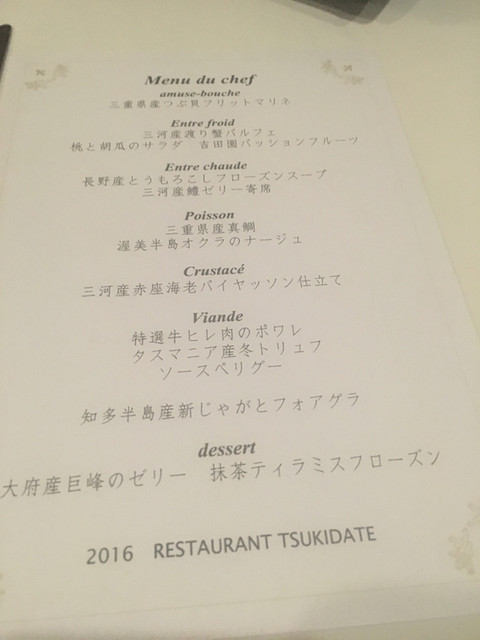 Menu du chef
amuse-bouche
三重県産つぶ貝フリットマリネ
Entre froid
三河産渡り蟹パルフェ
桃と胡瓜のサラダ 吉田園パッションフルーツ
Entre chaude
長野産とうもろこしフローズンスープ
三河産鱧ゼリー寄席
Poisson
三重県産真鯛
渥美半島オクラのナージュ
Crustacé
三河産赤座海老パイヤッソン仕立て
Viande
特選牛ヒレ肉のポワレ
タスマニア産冬トリュフ
ソースペリグー
知多半島産新じゃがとフォアグラ
dessert
大府産巨峰のゼリー 抹茶ティラミスフローズン
2016 RESTAURANT TSUKIDATE